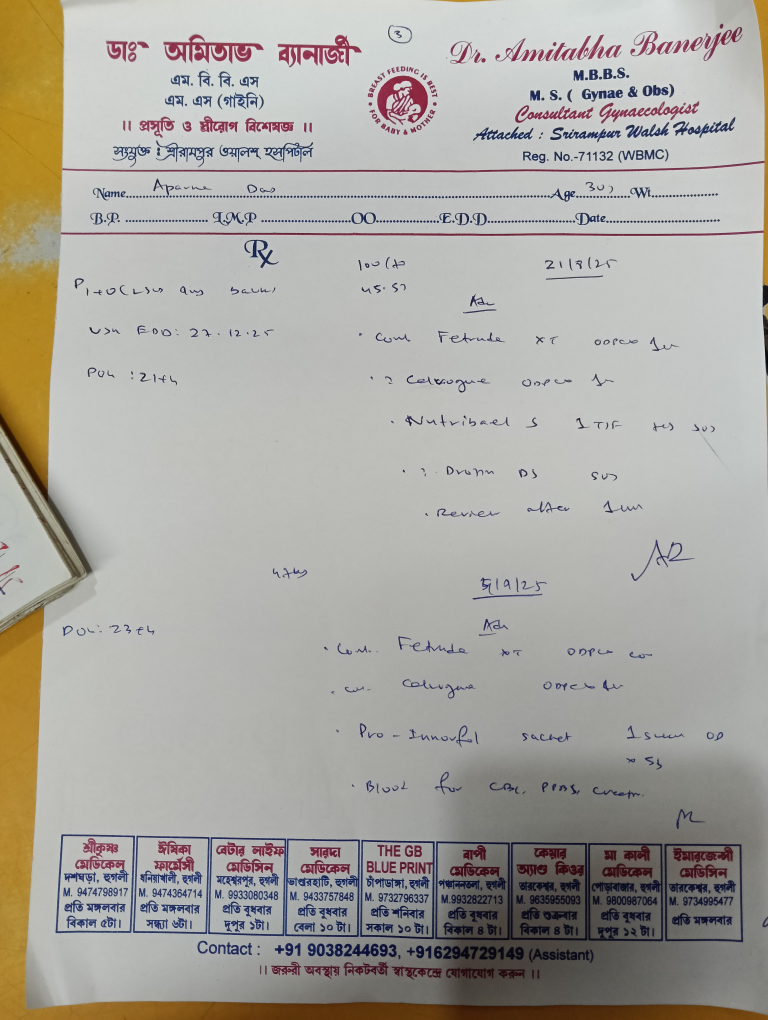 3
ডাঃ অমিতাভ ব্যানার্জী
এম. বি. বি. এস
এম. এস (গাইনি)
।। প্রসূতি ও স্ত্রীরোগ বিশেষজ্ঞ ।।
সংযুক্ত : শ্রীরামপুর ওয়ালশ হসপিটাল
BREAST FEEDING IS BEST
FOR BABY & MOTHER
Dr. Amitabha Banerjee
M.B.B.S.
M. S. ( Gynae & Obs)
Consultant Gynaecologist
Attached : Srirampur Walsh Hospital
Reg. No.-71132 (WBMC)
Name Aparna Das Age 30y Wt
B.P. L.M.P OO E.D.D. Date
Rx
21/8/25
45.5
Adv
USG EDD: 27.12.25
POG : 21+4
Cont Fetrude XT
Nutribael S 1 TIF
DS
Review after 1
5/9/25
POG: 23+4
Adv
Cont. Fetrude XT
Pro-Innorful sachet 1 OD
Blood for CBC, PPBS, Creatn.
শ্রীকৃষ্ণ মেডিকেল
দশঘড়া, হুগলী
M. 9474798917
প্রতি মঙ্গলবার
বিকাল ৫টা।
ঈষিকা ফার্মেসী
ধনিয়াখালী, হুগলী
M. 9474364714
প্রতি মঙ্গলবার
সন্ধ্যা ৬টা।
বেটার লাইফ মেডিসিন
মহেশ্বরপুর, হুগলী
M. 9933080348
প্রতি বুধবার
দুপুর ১টা।
সারদা মেডিকেল
ভান্ডারহাটি, হুগলী
M. 9433757848
প্রতি বুধবার
বেলা ১০ টা।
THE GB BLUE PRINT
চাঁপাডাঙ্গা, হুগলী
M. 9732796337
প্রতি শনিবার
সকাল ১০ টা।
বাপী মেডিকেল
পঞ্চাননতলা, হুগলী
M.9932822713
প্রতি বুধবার
বিকাল ৪ টা।
কেয়ার অ্যাণ্ড কিওর
তারকেশ্বর, হুগলী
M. 9635955093
প্রতি শুক্রবার
বিকাল ৪ টা।
মা কালী মেডিকেল
পোড়াবাজার, হুগলী
M. 9800987064
প্রতি বুধবার
দুপুর ১২ টা।
ইমারজেন্সী মেডিসিন
তারকেশ্বর, হুগলী
M. 9734995477
প্রতি মঙ্গলবার
Contact : +91 9038244693, +916294729149 (Assistant)
।। জরুরী অবস্থায় নিকটবর্তী স্বাস্থ্যকেন্দ্রে যোগাযোগ করুন ।।